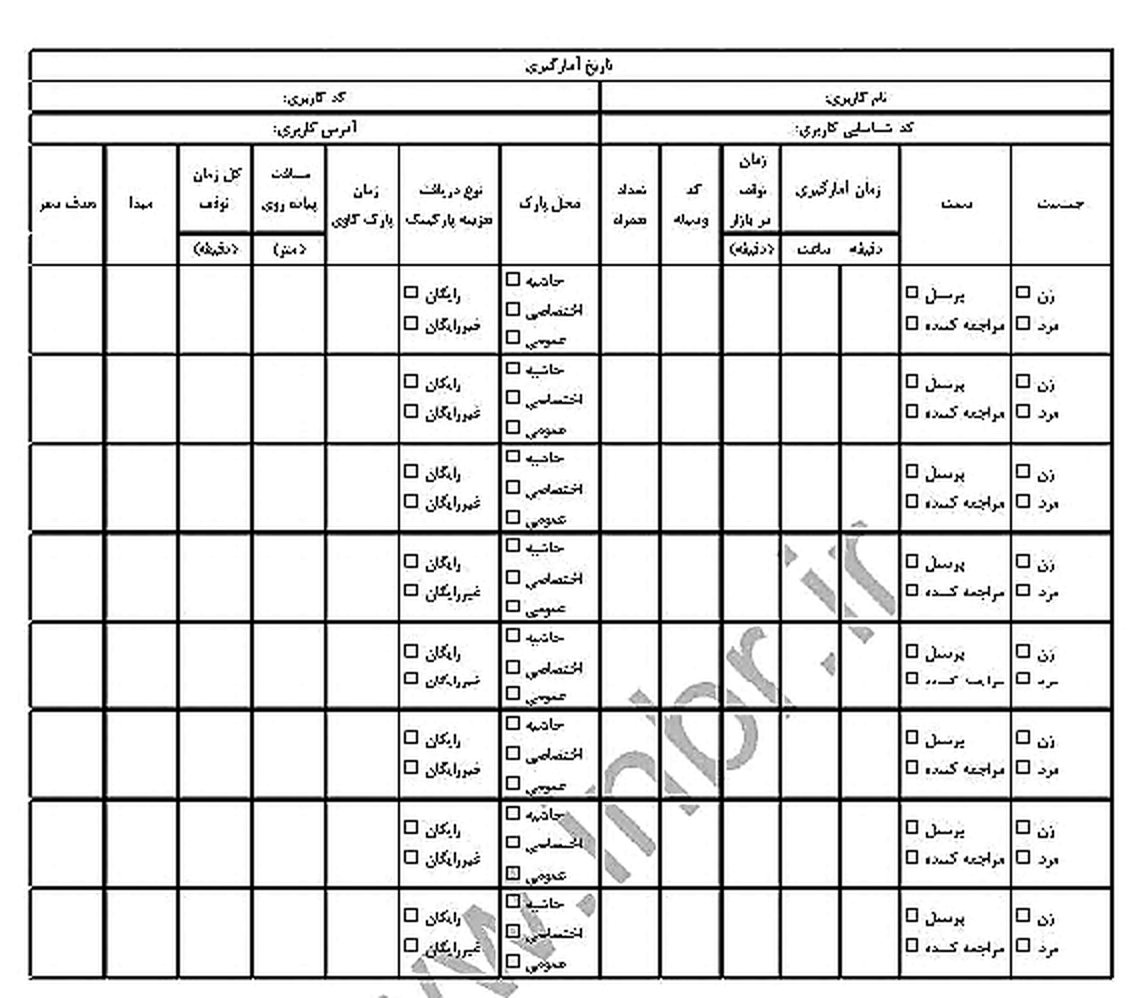 تاریخ آمارگیری
نام کاربری:
کد کاربری:
کد شناسایی کاربری:
آدرس کاربری:
جنسیت
سمت
زمان آمارگیری
دقیقه ساعت
زمان توقف در بازار
(دقیقه)
کد وسیله
تعداد همراه
محل پارک
نوع دریافت هزینه پارکینگ
زمان پارک کاوی
مسافت پیاده روی
(متر)
کل زمان توقف
(دقیقه)
مبدا
هدف سفر
زن پرسنل حاشیه رایگان
مرد مراجعه کننده اختصاصی غیررایگان
عمومی
زن پرسنل حاشیه رایگان
مرد مراجعه کننده اختصاصی غیررایگان
عمومی
زن پرسنل حاشیه رایگان
مرد مراجعه کننده اختصاصی غیررایگان
عمومی
زن پرسنل حاشیه رایگان
مرد مراجعه کننده اختصاصی غیررایگان
عمومی
زن پرسنل حاشیه رایگان
مرد مراجعه کننده اختصاصی غیررایگان
عمومی
زن پرسنل حاشیه رایگان
مرد مراجعه کننده اختصاصی غیررایگان
عمومی
زن پرسنل حاشیه رایگان
مرد مراجعه کننده اختصاصی غیررایگان
عمومی
زن پرسنل حاشیه رایگان
مرد مراجعه کننده اختصاصی غیررایگان
عمومی